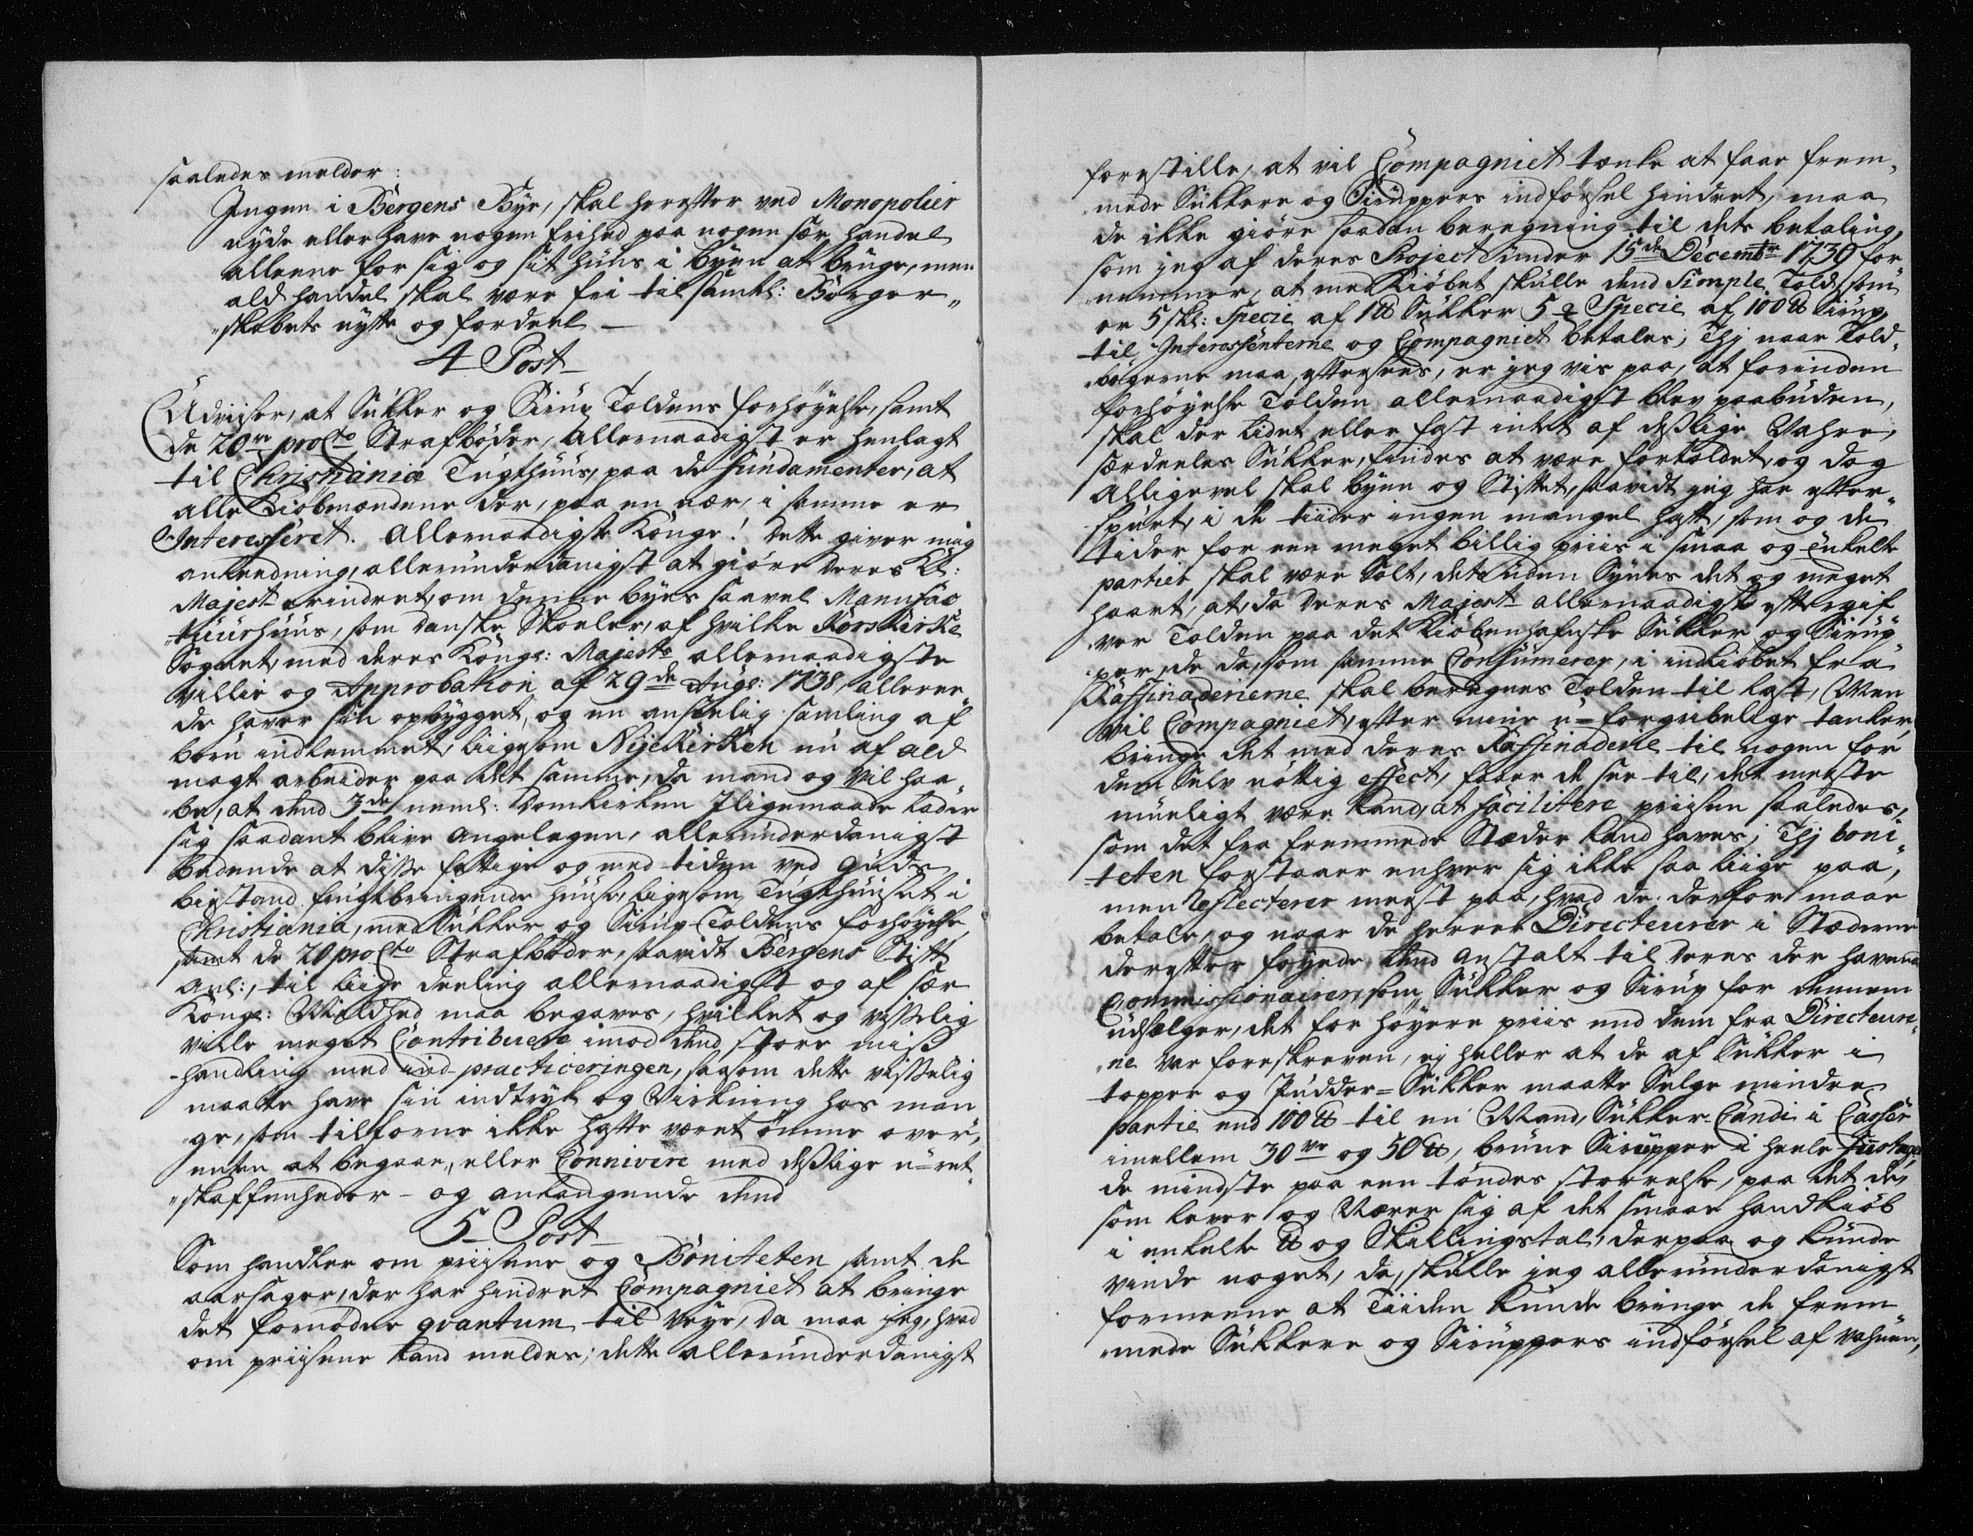 saaledes melder:
Ingen i Bergens Bye, skal herefter ved Monopolier
nyde eller have nogen frihed paa nogen sær handel
alleene for sig og sit huus i byen at bruge, men
ald handel skal være fri til samtl: Borger-
skabets nytte og fordeel —
4 Post
Udviiser, at Sukker og Sirup Toldens forhøyelse, samt
de 20ve proCto Strafbøder, allernaadigst er henlagt
til Christiania Tugthuus, paa de fundamenter, at
alle Kiøbmændene der, paa en nær, i samme er
Interesseret. Allernaadigste Konge! dette giver mig
anledning, allerunderdanigst at giøre Deres Kl:
Majestt erindret, om denne byes saavel Manufac
tuurhuus, som danske Skoeler, af hvilke Korskirke
Sognet, med deres Kongl: Majestts allernaadigste
villie og Approbation af 29de Aug: 1738, alleree-
de haver sin opbygget, og en anseelig samling af
børn indlemmet, liigesom Nyekirken nu af ald
magt arbeider paa det samme, da mand og vil haa-
be, at dend 3de neml: Domkirken Iligemaade lader
sig saadant blive angelegen, allerunderdanigst
bedende at disse fattige og med tiden ved Guds
biestand frugtbringende huuse, ligesom Tugthuuset i
Christiania, med Sukker og Sirup Toldens forhøyelse
samt de 20 proCto Strafbøder, saavidt Bergens Stift
anl:, til liige deeling allernaadigst og af sær
Kongl: Mildhed maa begaves, hvilket og visselig
ville meget Contribuere imod dend store miss
handling med ind-practiceringen, saasom dette visselig
maatte have sin indtryk og Virkning hos man
ge, som tilforne ikke hafte været ømme over,
enten at begaae, eller Connivere med desslige u=ret-
skaffenheder — og anlangende dend
5 Post
Som handler om priisene og Boniteten samt de
aarsager, der har hindret Compagniet at bringe
det fornødne qvantum til veye, da maa jeg, hvad
om priisene kand meldes; dette allerunderdanigst
forestille, at vil Compagniet tænke at faae frem-
mede Sukkere og Siruppers indførsel hindret, maa
de ikke giøre saadan beregning til dets betaling,
som jeg af deres Project under 15de Decembr 1739 for
nemmer, at med Kiøbet skulle dend Simple Told, som
er 5 skl: Specie af 1 ℔ Sukker 5 ₰ Specie af 100 ℔ Sirup,
til Interessenterne og Compagniet betales; Thj naar Told-
bøgerne maa eftersees, er jeg vis paa, at forinden
forhøyelse Tolden allernaadigst blev paabuden,
skal der lidet eller fast intet af desslige Vahre,
særdeeles Sukker, findes at være fortoldet, og dog
alligevel skal byen og Stiftet, saavidt jeg har efter-
spurt, i de tiider ingen mangel haft, som og de
tider for een meget billig priis i smaa og Enkelte
partier skal være Solt, dets uden Synes det og meget
haart, at, da Deres Majestt allernaadigst eftergif
ver Tolden paa det Kiøbenhafnske Sukker og Sirup
per, de da, som samme Consumerer, i indkiøbet fra
Raffinaderierne skal beregnes Tolden til last, Men
vil Compagniet, efter mine u=forgribelige tanker,
bringe det med deres Raffinaderie til nogen for
dem Selv nøttig effect, faaer de see til, det meeste
mueligt være kand, at facilitere priisen saaledes,
som det fra fremmede Stæder kand haves; Thj boni-
teten forstaaer enhver sig ikke saa liige paa,
men reflecterer meest paa, hvad de derfor maae
betale, og naar de herrer Directeurer i Stæderne
derefter føyede dend anstalt til deres der havende
Commissionairer, som Sukker og Sirup for dennem
udselger, det for høyere priis end dem fra Directeure-
ne var foreskreven, ej heller at de af Sukker i
topper og Pudder=Sukker maatte Selge mindre
partie end 100 ℔ til en Mand, Sukker-Candi i Casser
imellem 30ve og 50 ℔, brune Sirupper i heele Fustager
de mindste paa een tøndes størrelse, paa det de,
som lever og Nærer sig af det smaae handkiøb
i enkelte ℔ og Skillingstal, derpaa og kunde
vinde noget, da skulle jeg allerunderdanigst
formeene at Tiiden kunde bringe de frem
mede Sukkere og Siruppers indførsel af vahnen,